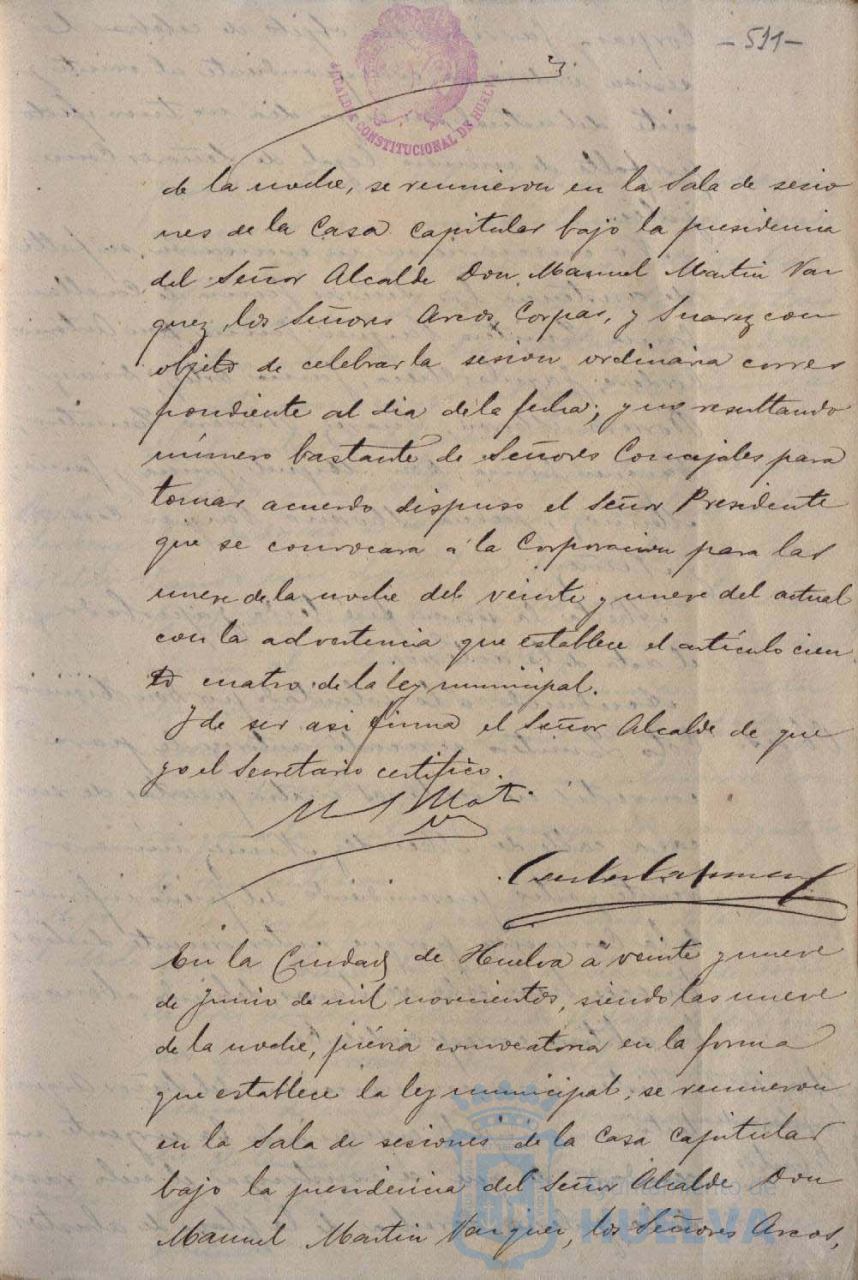 - 591 -
ALCALDIA CONSTITUCIONAL DE HUELVA
de la noche, se reunieron en la Sala de sesio
nes de la Casa Capitular bajo la presidencia
del Señor Alcalde Don Manuel Martin Vaz
quez, los Señores Arcos, Corpas, y Suarez con
objeto de celebrar la sesion ordinaria corres
pondiente al dia de la fecha; y no resultando
número bastante de Señores Concejales para
tomar acuerdo dispuso el Señor Presidente
que se convocara á la Corporacion para las
nueve de la noche del veinte y nueve del actual
con la advertencia que establece el artículo cien
to cuatro de la ley municipal.
Y de ser asi firma el Señor Alcalde de que
yo el Secretario certifico.
En la Ciudad de Huelva á veinte y nueve
de Junio de mil novecientos, siendo las nueve
de la noche, prévia convocatoria en la forma
que establece la ley municipal, se reunieron
en la Sala de sesiones de la Casa Capitular
bajo la presidencia del Señor Alcalde Don
Manuel Martin Vazquez, los Señores Arcos,
HUELVA